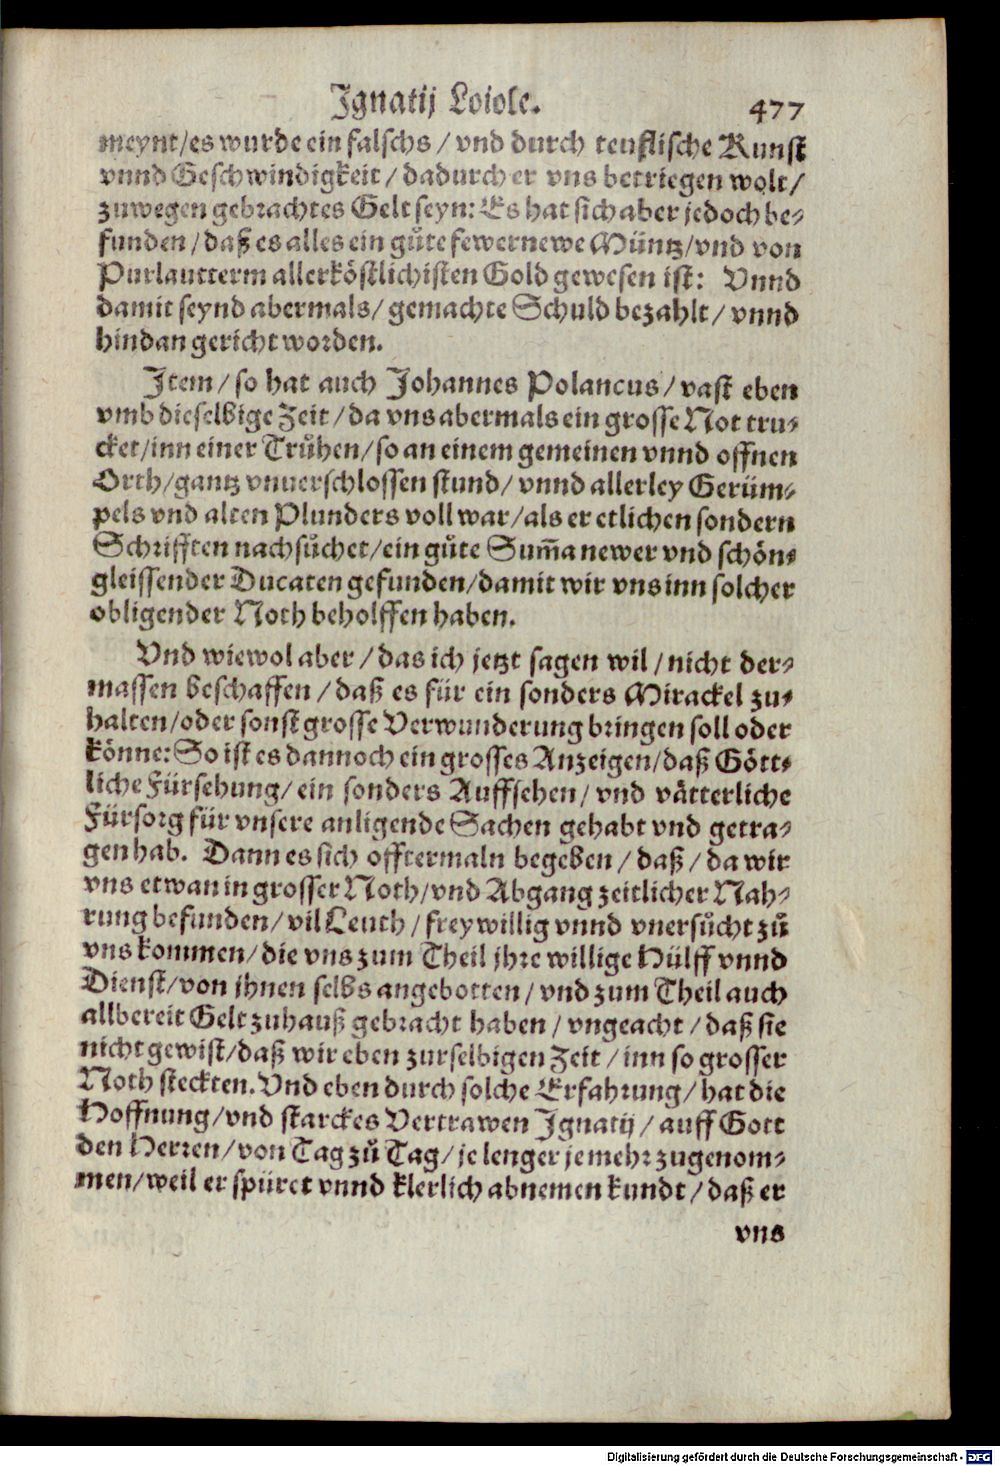 Ignatij Loiole. 477
meynt/es wurde ein falschs / vnd durch teuflische Kunst
vnnd Geschwindigkeit / dadurch er vns betriegen wolt /
zuwegen gebrachtes Gelt seyn: Es hat sich aber jedoch be-
funden / daß es alles ein gůte fewernewe Müntz/vnd von
Purlautterm allerköstlichisten Gold gewesen ist: Vnnd
damit seynd abermals / gemachte Schuld bezahlt / vnnd
hindan gericht worden.
Item / so hat auch Johannes Polancus / vast eben
vmb dieselbige Zeit / da vns abermals ein grosse Not tru-
cket/inn einer Trůhen / so an einem gemeinen vnnd offnen
Orth/gantz vnuerschlossen stund / vnnd allerley Gerüm-
pels vnd alten Plunders voll war/als er etlichen sondern
Schrifften nachsůchet/ein gůte Sum̃a newer vnd schön-
gleissender Ducaten gefunden/damit wir vns inn solcher
obligender Noth beholffen haben.
Vnd wiewol aber / das ich jetzt sagen wil / nicht der-
massen beschaffen / daß es für ein sonders Mirackel zu-
halten/oder sonst grosse Verwunderung bringen soll oder
könne: So ist es dannoch ein grosses Anzeigen/daß Gött-
liche Fürsehung/ ein sonders Auffsehen / vnd vätterliche
Fürsorg für vnsere anligende Sachen gehabt vnd getra-
gen hab. Dann es sich offtermaln begeben / daß / da wir
vns etwan in grosser Noth/vnd Abgang zeitlicher Nah-
rung befunden / vil Leuth / freywillig vnnd vnersůcht zů
vns kommen / die vns zum Theil jhre willige Hülff vnnd
Dienst/von jhnen selbs angebotten / vnd zum Theil auch
allbereit Gelt zuhauß gebracht haben / vngeacht / daß sie
nicht gewist/daß wir eben zurselbigen Zeit / inn so grosser
Noth steckten. Vnd eben durch solche Erfahrung / hat die
Hoffnung/vnd starckes Vertrawen Ignatij / auff Gott
den Herren/von Tag zů Tag / je lenger je mehr zugenom-
men/weil er spüret vnnd klerlich abnemen kundt / daß er
vns
Digitalisierung gefördert durch die Deutsche Forschungsgemeinschaft - DFG